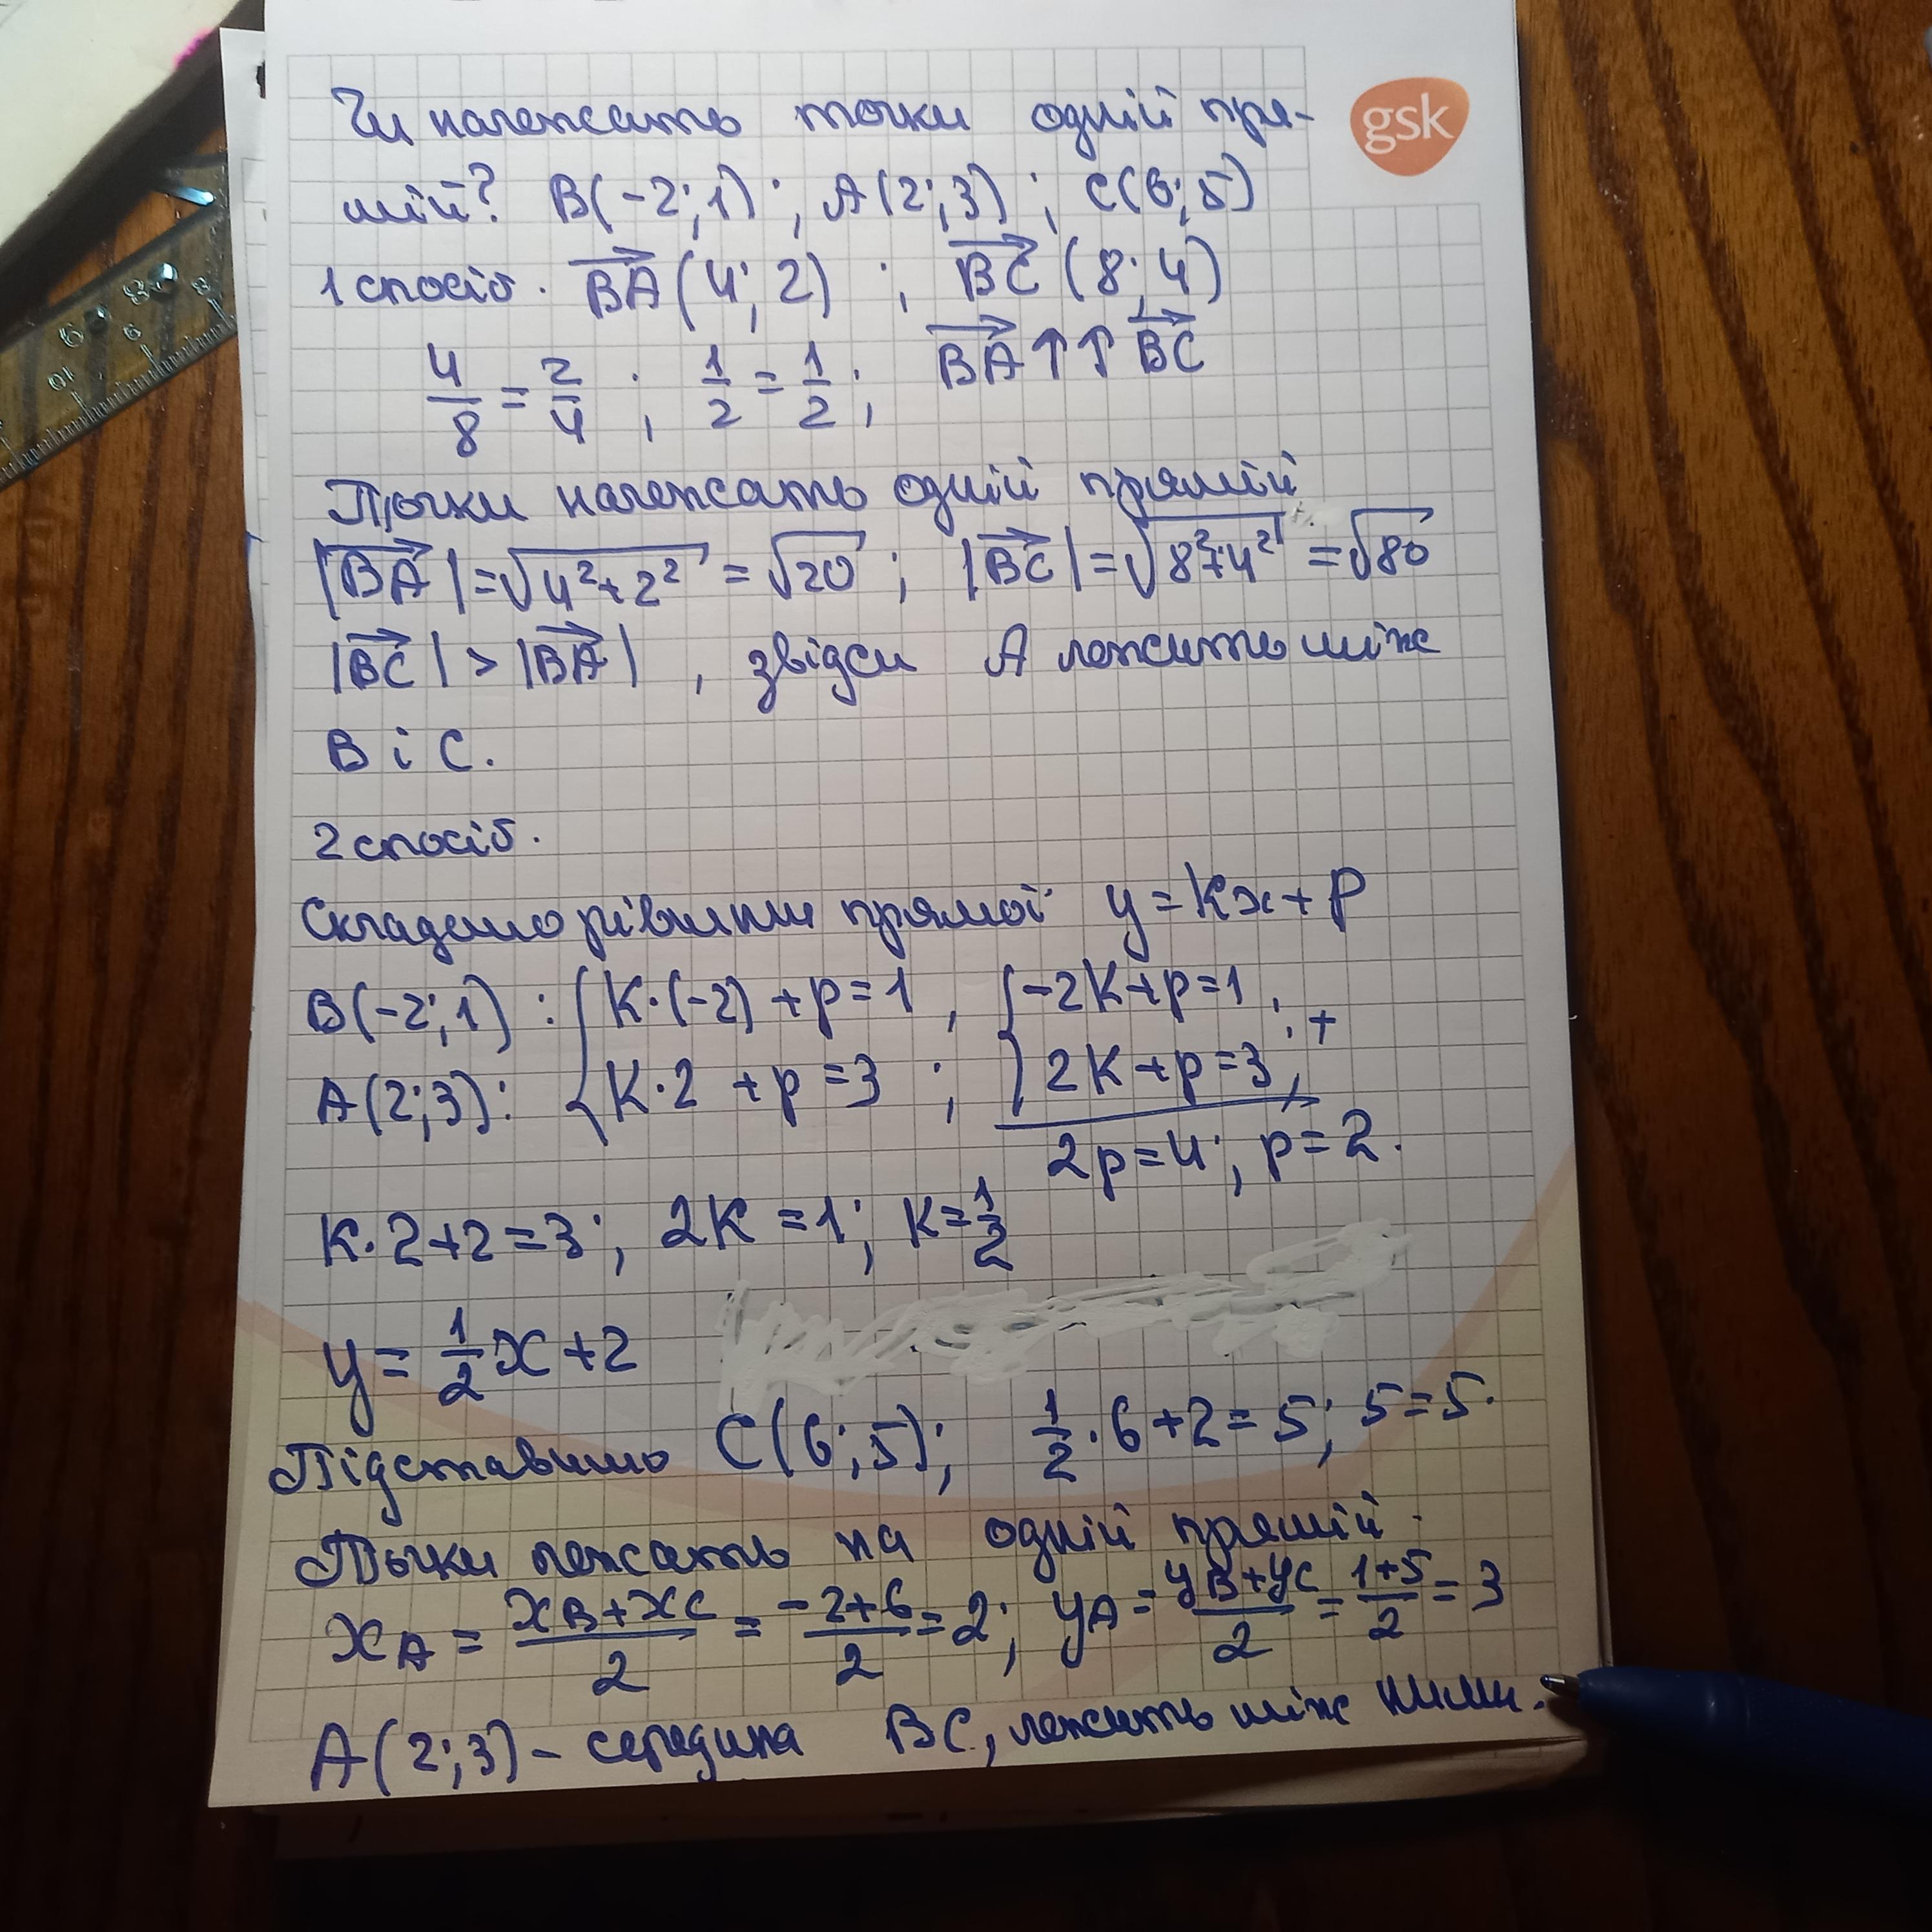 Чи належать точки одній пря-
gsk
мій? B(-2;1); A(2;3); C(6;5)
1 спосіб. BA→(4;2); BC→(8;4)
4/8 = 2/4; 1/2 = 1/2; BA→ ↑↑ BC→
Точки належать одній прямій
|BA→| = √(4²+2²) = √20; |BC→| = √(8²+4²) = √80
|BC→| > |BA→|, звідси A лежить між
B і C.
2 спосіб.
Складемо рівняння прямої y = kx + p
B(-2;1): { k·(-2) + p = 1, { -2k + p = 1; +
A(2;3): { k·2 + p = 3; { 2k + p = 3;
2p = 4; p = 2.
k·2+2=3; 2k = 1; k = 1/2
y = 1/2 x + 2
Підставимо C(6;5); 1/2·6+2=5; 5=5.
Точки лежать на одній прямій.
xA = (xB+xC)/2 = (-2+6)/2 = 2; yA = (yB+yC)/2 = (1+5)/2 = 3
A(2;3) – середина BC, лежить між ними.